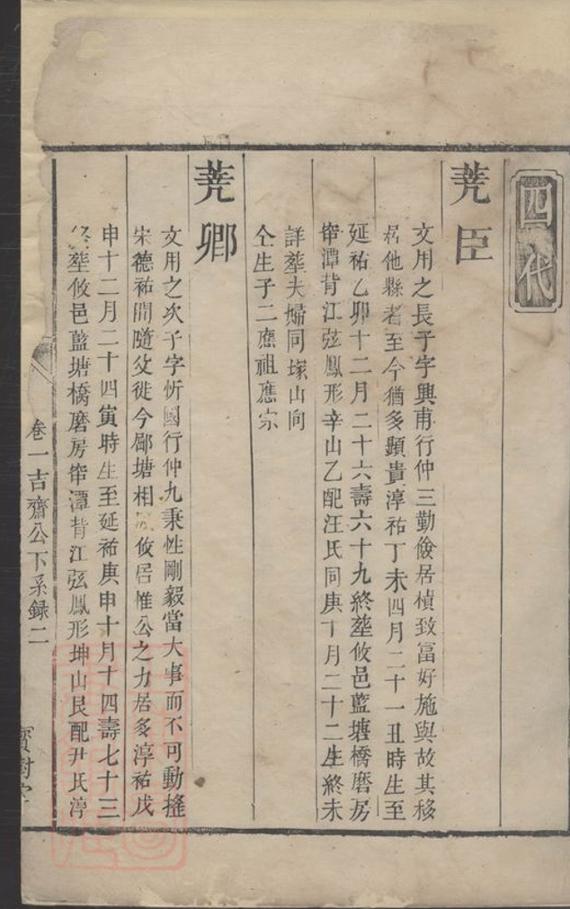 四代
蕘臣
文用之長子字興甫行仲三勤儉居積致富好施與故其移
居他縣者至今猶多顯貴淳祐丁未四月二十一丑時生至
延祐乙卯十二月二十六壽六十九終塟攸邑藍塘橋磨房
潭背江弦鳳形辛山乙配汪氏同庚十月二十二生終未
詳塟夫婦同塚山向
仝生子二應祖應宗
蕘卿
文用之次子字忻國行仲九秉性剛毅當大事而不可動搖
宋德祐間隨父徙今鄙塘相攸居惟公之力居多淳祐戊
申十二月二十四寅時生至延祐庚申十月十四壽七十三
終塟攸邑藍塘橋磨房潭背江弦鳳形坤山艮配尹氏淳
卷一吉齋公下系録二